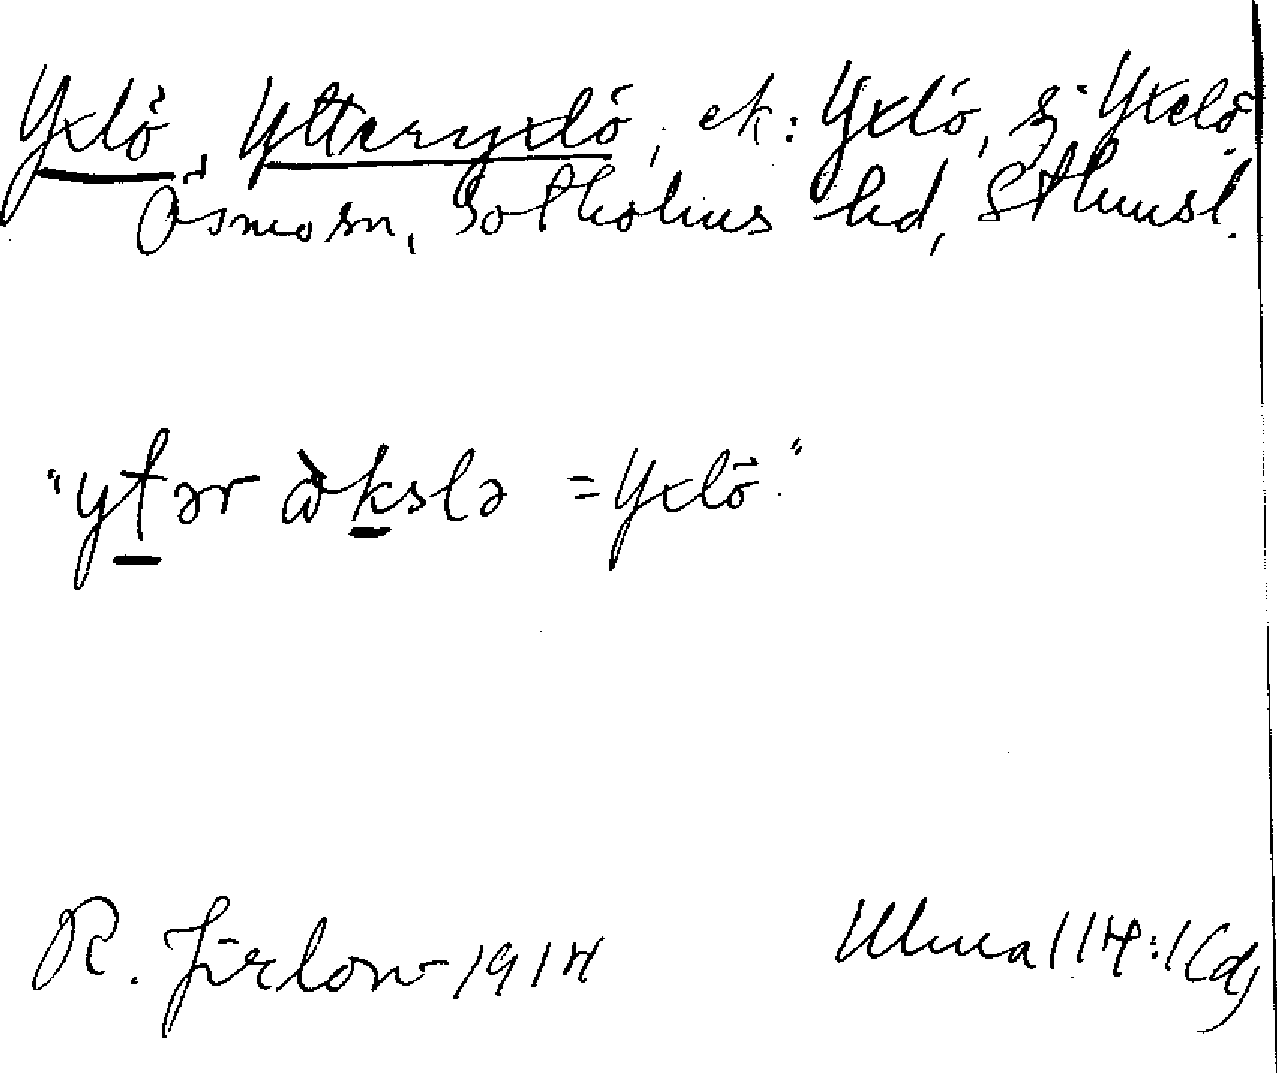 Yxlö, Ytteryxlö, ek: Yxlö, sj Yxelö.
Ösmo sn, Sotholms hd, Sthmsl.
"ytər ὼkslə = Yxlö."
R. Jirlow 1914 Ulma 114:1(d)